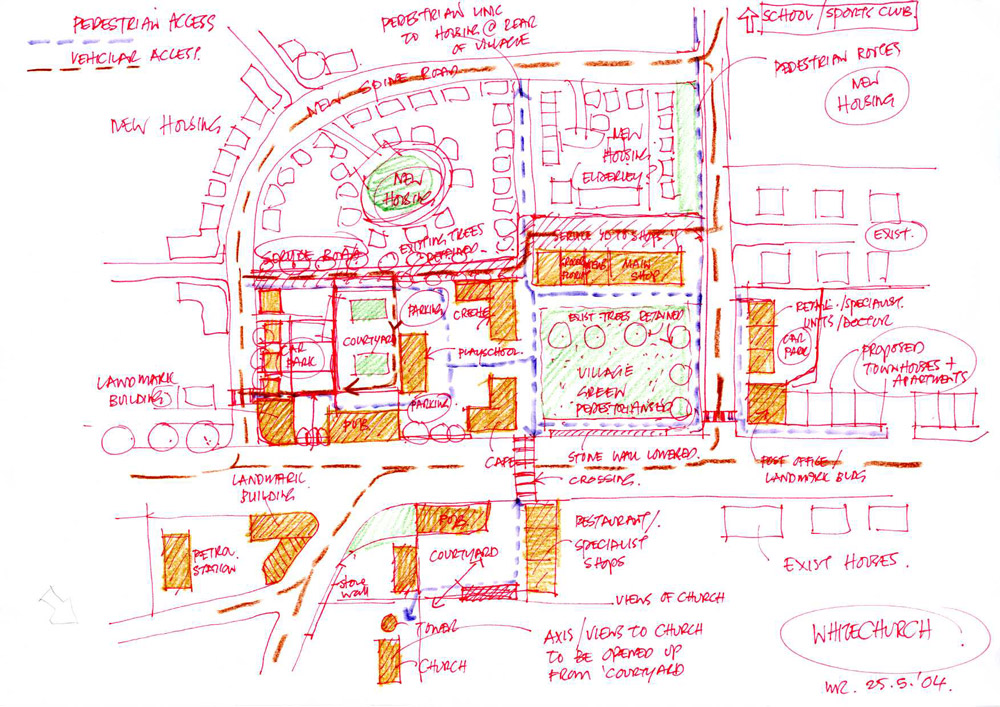 PEDESTRIAN ACCESS
VEHICULAR ACCESS.
PEDESTRIAN LINK
TO HOUSING @ REAR
OF VILLAGE
SCHOOL/SPORTS CLUB.
PEDESTRIAN ROUTES
NEW
HOUSING
NEW SPINE ROAD
NEW HOUSING
NEW
HOUSING
NEW
HOUSING
ELDERLEY?
EXIST.
EXISTING TREES
SERVICE ROAD
SERVICE YD TO SHOPS
MAIN
SHOP.
PARKING
CRECHE
COURTYARD
CAR
PARK
PLAYSCHOOL
PARKING
PUB
CAFE
EXIST TREES RETAINED
VILLAGE
GREEN
PEDESTRIANISED
RETAIL/SPECIALIST
UNITS/DOCTOR
CAR
PARK
PROPOSED
TOWNHOUSES +
APARTMENTS
LANDMARK
BUILDING
LANDMARK
BUILDING
STONE WALL LOWERED.
CROSSING.
POST OFFICE/
LANDMARK BLDG
PETROL
STATION
PUB
COURTYARD
RESTAURANT/
SPECIALIST
SHOPS
EXIST HOUSES.
stone
wall
VIEWS OF CHURCH
TOWER
CHURCH
AXIS/VIEWS TO CHURCH
TO BE OPENED UP
FROM 'COURTYARD
WHITECHURCH
25.5.'04.